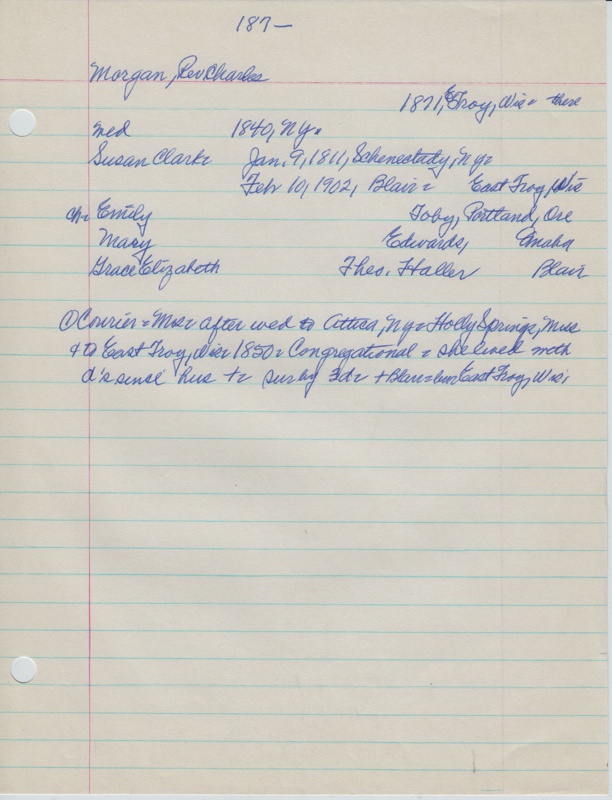 187—
Morgan, Rev. Charles
1871, E Troy, Wis = there
wed 1840, NY =
Susan Clark = Jan. 9, 1811, Schenectady, NY =
Feb 10, 1902, Blair = East Troy, Wis
ch = Emily Toby, Portland, Ore
Mary Edwards, Omaha
Grace Elizabeth Theo. Haller Blair
① Courier = Mrs = after wed to Attica, NY = Holly Springs, Miss
& to East Troy, Wis = 1850 = Congregational = she lived with
d's since hus + = sur by 3d = + Blair = bur East Troy, Wis,